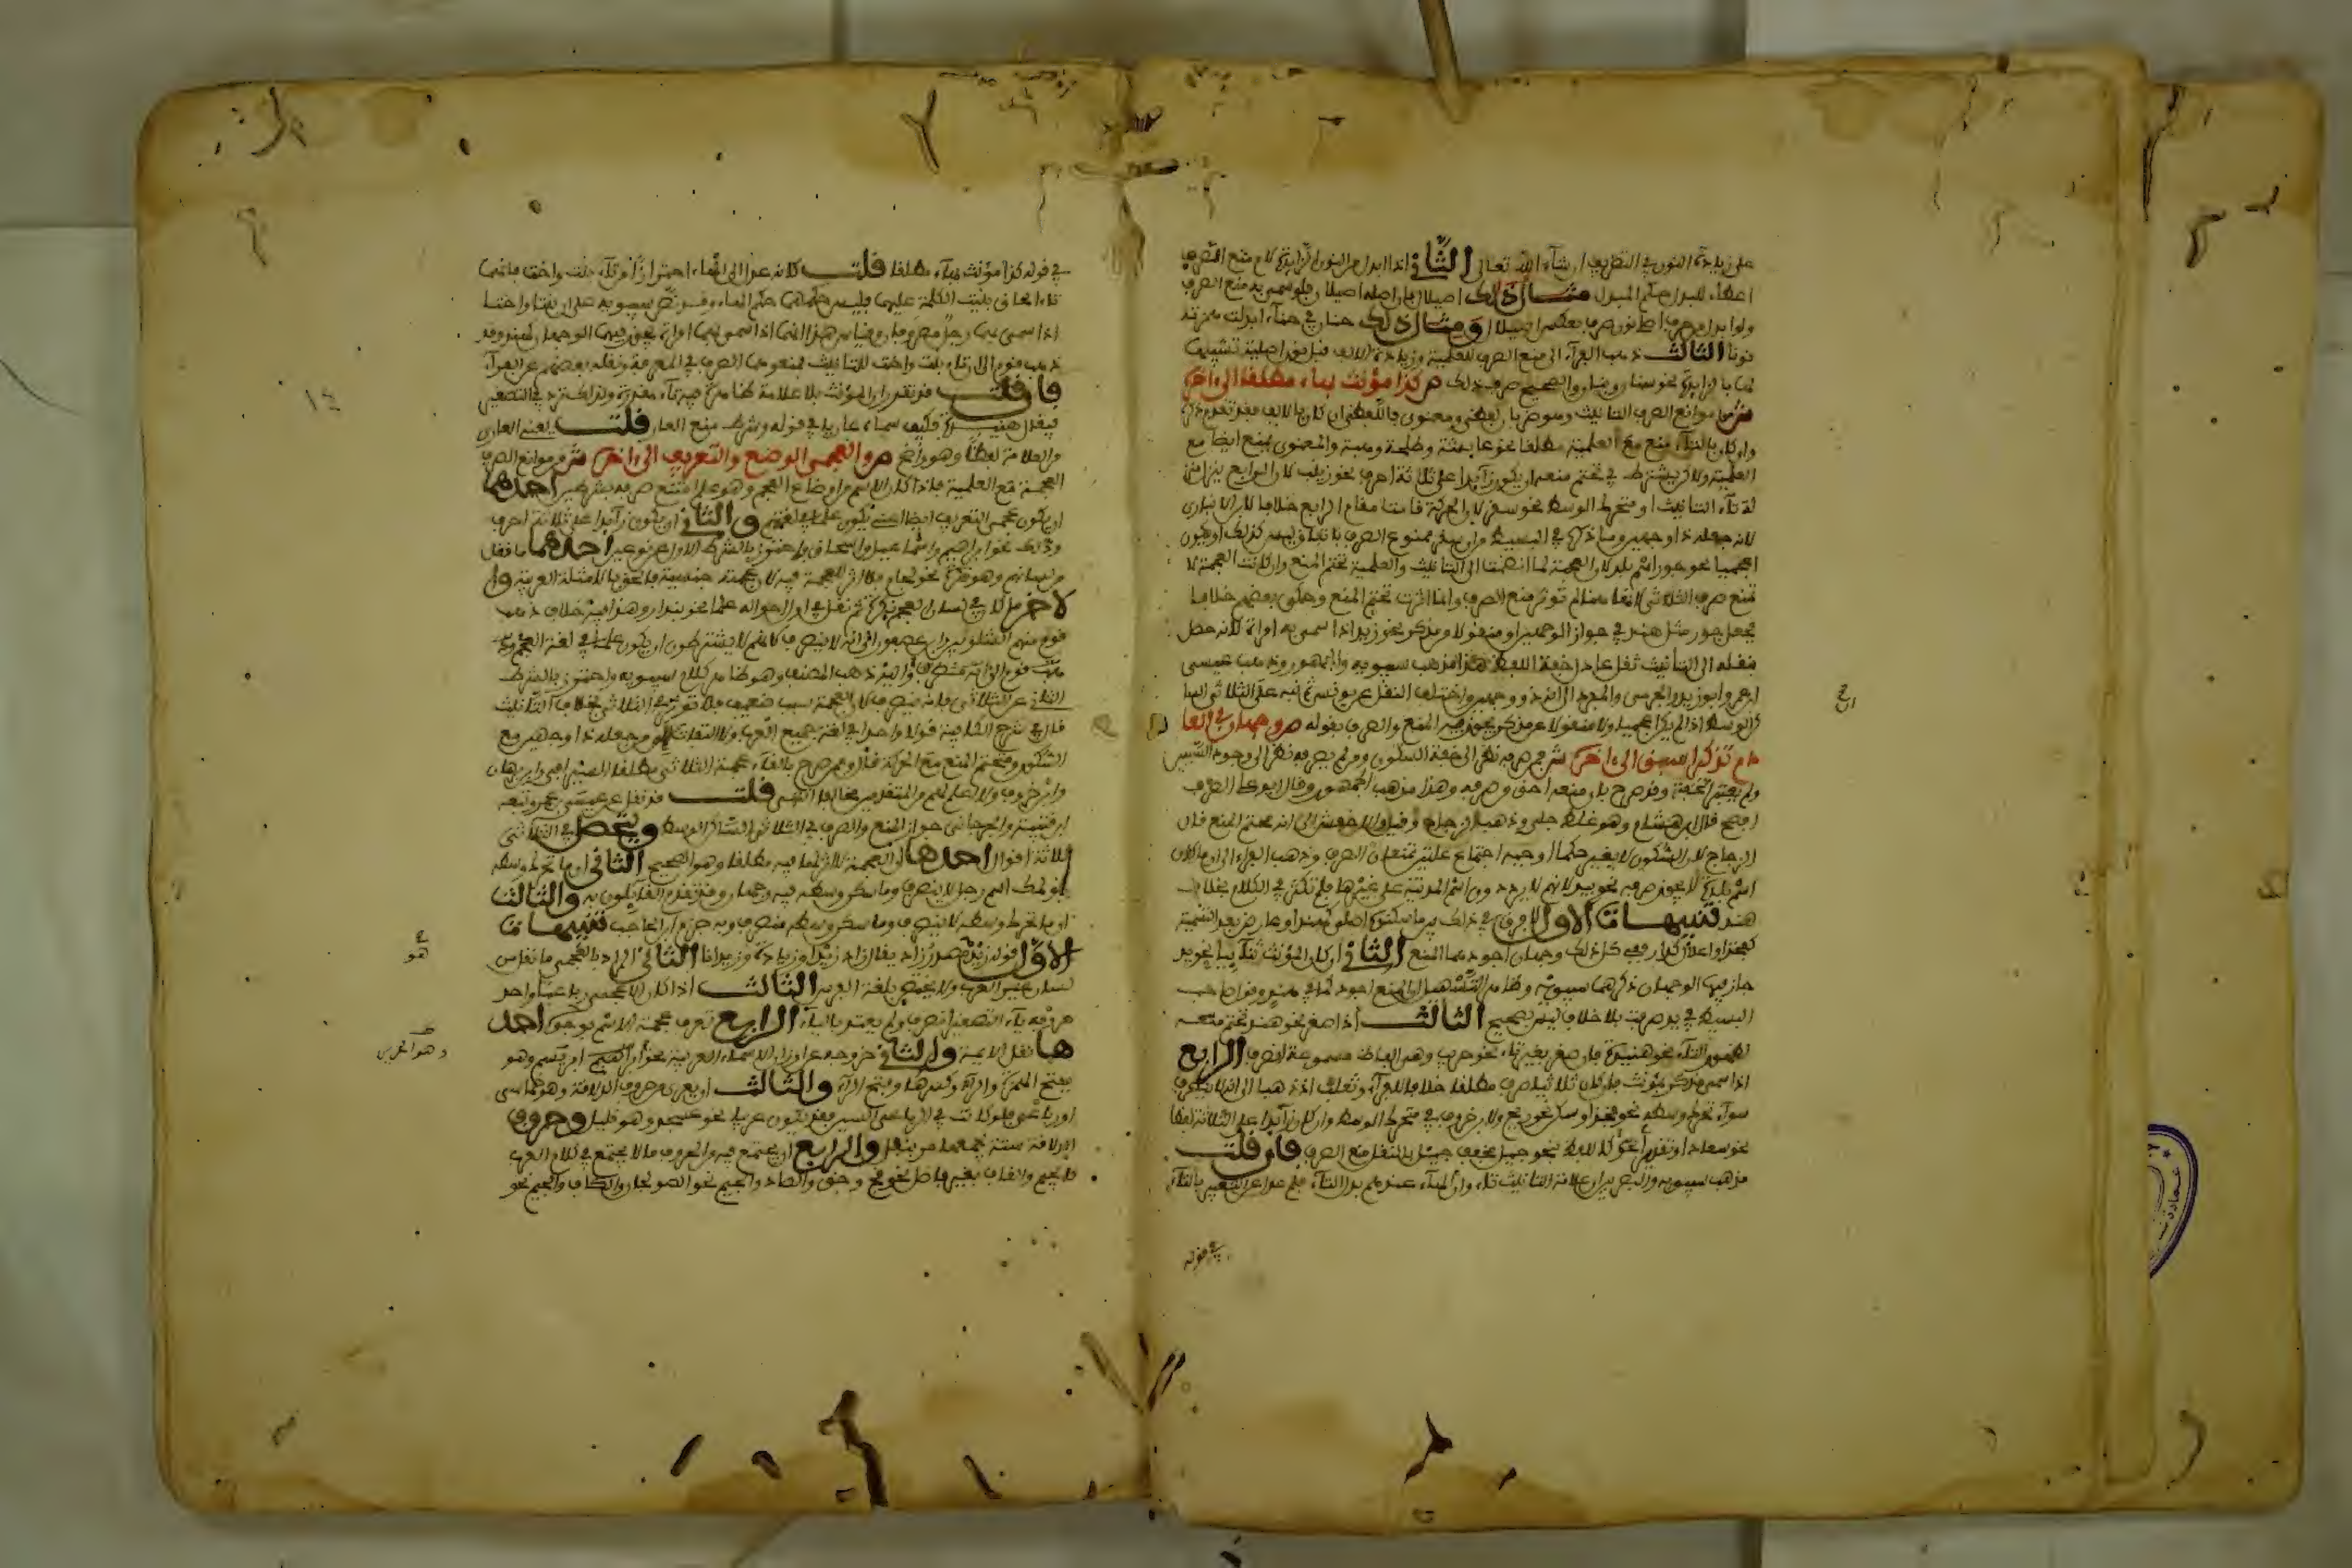 على زيادة النون في التصريف ان شاء الله تعالى الثاني اذا ابدل من النون الزايدة لام منع الصرف
اعطاء للبدل حكم المبدل مثال ذلك اصيلال فان اصله اصيلان فلو سمي به منع الصرف
ولو ابدل من حرف اصلي نون صرف بعكس اصيلال ومثال ذلك حنان في حناء ابدلت همزته
نونا الثالث ذهب الفراء الى منع الصرف للعلمية وزيادة الالف قبل نون اصلية تشبيها
لها بالزايدة نحو سنان وبيان والصحيح صرف ذلك ص كذا مؤنث بهاء مطلقا الى اخره
ش من موانع الصرف التانيث وهو ضربان لفظي ومعنوي فاللفظي ان كان بالالف فقد تقدم ذكره
وان كان بالتاء منع مع العلمية مطلقا نحو عايشة وطلحة وهبة والمعنوي يمنع ايضا مع
العلمية ولاكن يشترط في تحتم منعه ان يكون زايدا على ثلاثة احرف نحو زينب لان الرابع ينزل منز
لة تاء التانيث او متحرك الوسط نحو سقر لان الحركة قامت مقام الرابع خلافا لابن الانباري
لانه جعله ذا وجهين وما ذكره في البسيط من ان سقر ممنوع الصرف باتفاق ليس كذلك او يكون
اعجميا نحو جور اسم بلد لان العجمة لما انضمت الى التانيث والعلمية تحتم المنع وان كانت العجمة لا
تمنع صرف الثلاثي لانها هنا لم توثر منع الصرف وانما اثرت تحتم المنع وحكى بعضهم خلافا
فجعل جور مثل هند في جواز الوجهين او منقولا من مذكر نحو زيد اذا سمي به امراة لانه حصل
بنقله الى التانيث ثقل عادل خفة اللفظ هذا مذهب سيبويه والجمهور وذهب عيسى
ابن عمر وابو زيد والجرمي والمبرد الى انه ذو وجهين واختلف النقل عن يونس ثم نبه على الثلاثي السا
كن الوسط اذا لم يكن اعجميا ولا منقولا عن مذكر يجوز فيه المنع والصرف بقوله ص وجهان في العا
دم تذكيرا سبق الى اخره ش فمن صرفه نظر الى خفة السكون ومن لم يصرفه نظر الى وجود السببين
ولم يعتبر الخفة وقد صرح بان منعه احق من صرفه وهذا مذهب الجمهور وقال ابو علي الصرف
افصح قال ابن هشام وهو غلط جلي وذهب الزجاج وقيل والاخفش الى انه محتم المنع قال
الزجاج لان السكون لا يغير حكما اوجبه اجتماع علتين تمنعان الصرف وذهب الفراء الى ان ما كان
اسم بلدة لا يجوز صرفه نحو فيد لانهم لا يرددون اسم المدينة على غيرها فلم تكثر في الكلام بخلاف
هند تنبيهات الاول لا فرق في ذلك بين ما سكونه اصلي كهند او عارض بعد التسمية
كفخذ او اعلال كدار ففي كل ذلك وجهان اجودهما المنع الثاني ان كان المؤنث ثنائيا نحو يد
جاز فيها الوجهان ذكرهما سيبويه وظاهر التسهيل ان المنع اجود كما في هند وقول صاحب
البسيط في يد صرفت بلا خلاف ليس بصحيح الثالث اذا صغر نحو هند تحتم منعه
لظهور التاء نحو هنيدة فان صغر بغير تاء نحو حريب وهي الفاظ مسموعة انصرف الرابع
اذا سمي مذكر بمؤنث فان كان ثلاثيا صرف مطلقا خلافا للفراء وثعلب اذ ذهبا الى انه لا ينصرف
سواء تحرك وسطه نحو فخذ او سكن نحو ريح ولابن خروف في متحرك الوسط وان كان زايدا على الثلاثة لفظا
نحو سعاد او تقديرا نحو كاللفظ نحو جيل مخفف جيئل بالنقل منع الصرف فان قلت
مذهب سيبويه والبصريين ان علامة التانيث تاء وان الهاء عندهم بدل التاء فلم عدل عن التعبير بالتاء
في قوله
في قوله كذا مؤنث بهاء مطلقا قلت كانه عدل الى الهاء احترازا من تاء بنت واخت فانها
تاء الحاق بنيت الكلمة عليها فليس حكمها حكم الهاء وقد نص سيبويه على ان بنتا واختا
اذا سمي بهما رجل مصروفان وقياس هذا انهما اذا سمي بهما امراة يجوز فيهما الوجهان كهند وقد
ذهب قوم الى ان تاء بنت واخت للتانيث فمنعوهما الصرف في المعرفة ونقله بعضهم عن الفراء
فان قلت قد تقدر ان المؤنث بلا علامة ظاهرة فيه تاء مقدرة ولذلك ترد في التصغير
فيقال هنيدة فكيف سماه عاريا في قوله وشرط منع العار قلت يعني العاري
من العلامة لفظا وهو واضح ص والعجمي الوضع والتعريف الى اخره ش من موانع الصرف
العجمة مع العلمية فاذا كان الاسم من اوضاع العجم وهو علم امتنع صرفه بشرطين احدهما
ان يكون عجمي التعريف ايضا اعني يكون علما في لغتهم والثاني ان يكون زايدا على ثلاثة احرف
وذلك نحو ابراهيم واسماعيل واسحاق واحترز بالشرط الاول عن نوعين احدهما ما نقل
من لسانهم وهو نكرة نحو لجام فلا اثر للعجمة فيه لان عجمته جنسية فالحق بالامثلة العربية وا
لاخر ما كان في لسان العجم نكرة ثم نقل في اول احواله علما نحو بندار وهذا فيه خلاف ذهب
قوم منهم الشلوبين وابن عصفور الى انه لا ينصرف كانهم لا يشترطون ان يكون علما في لغة العجم وذ
هب قوم الى انه منصرف واليه ذهب المصنف وهو ظاهر كلام سيبويه واحترز بالشرط
الثاني عن الثلاثي فانه ينصرف لان العجمة سبب ضعيف فلا توثر في الثلاثي بخلاف التانيث
قال في شرح الكافية قولا واحدا في لغة جميع العرب ولا التفات الى من جعله ذا وجهين مع
السكون ومتحتم المنع مع الحركة قال وممن صرح بالغاء عجمة الثلاثي مطلقا السيرافي وابن برهان
وابن خروف ولا اعلم لهم من المتقدمين مخالفا انتهى قلت قد نقل عن عيسى بن عمر وتبعه
ابن قتيبة والجرجاني جواز المنع والصرف في الثلاثي الساكن الوسط ويتحصل في الثلاثي
ثلاثة اقوال احدها ان العجمة لا اثر لها فيه مطلقا وهو الصحيح الثاني ان ما تحرك وسطه
نحو لمك اسم رجل لا ينصرف وما سكن وسطه فيه وجهان وقد تقدم القايلون به والثالث
ان ما تحرك وسطه لا ينصرف وما سكن وسطه منصرف وبه جزم ابن الحاجب تنبيهات
الاول قوله زيد مصدر زاد يقال زاد زيدا وزيادة وزيدانا الثاني المراد بالعجمي ما نقل من
لسان غير العرب ولا يختص بلغة الفرس الثالث اذا كان الاعجمي رباعيا واحد
حروفه ياء التصغير انصرف ولم يعتد بالياء الرابع تعرف عجمة الاسم بوجوه احد
ها نقل الايمة والثاني خروجه عن اوزان الاسماء العربية نحو ابراهيم ابريسم وهو
بفتح الهمزة والراء وكسرها وفتح الراء والثالث ان يعرى من حروف الذلاقة وهو خماسي
او رباعي فلو كانت في الرباعي السين فقد يكون عربيا نحو عسجد وهو قليل وحروف
الذلاقة ستة يجمعها مر بنفل والرابع ان يجتمع فيه من الحروف ما لا يجتمع في كلام العرب
كالجيم والقاف بغير فاصل نحو قج وجق والصاد والجيم نحو الصولجان والكاف والجيم نحو